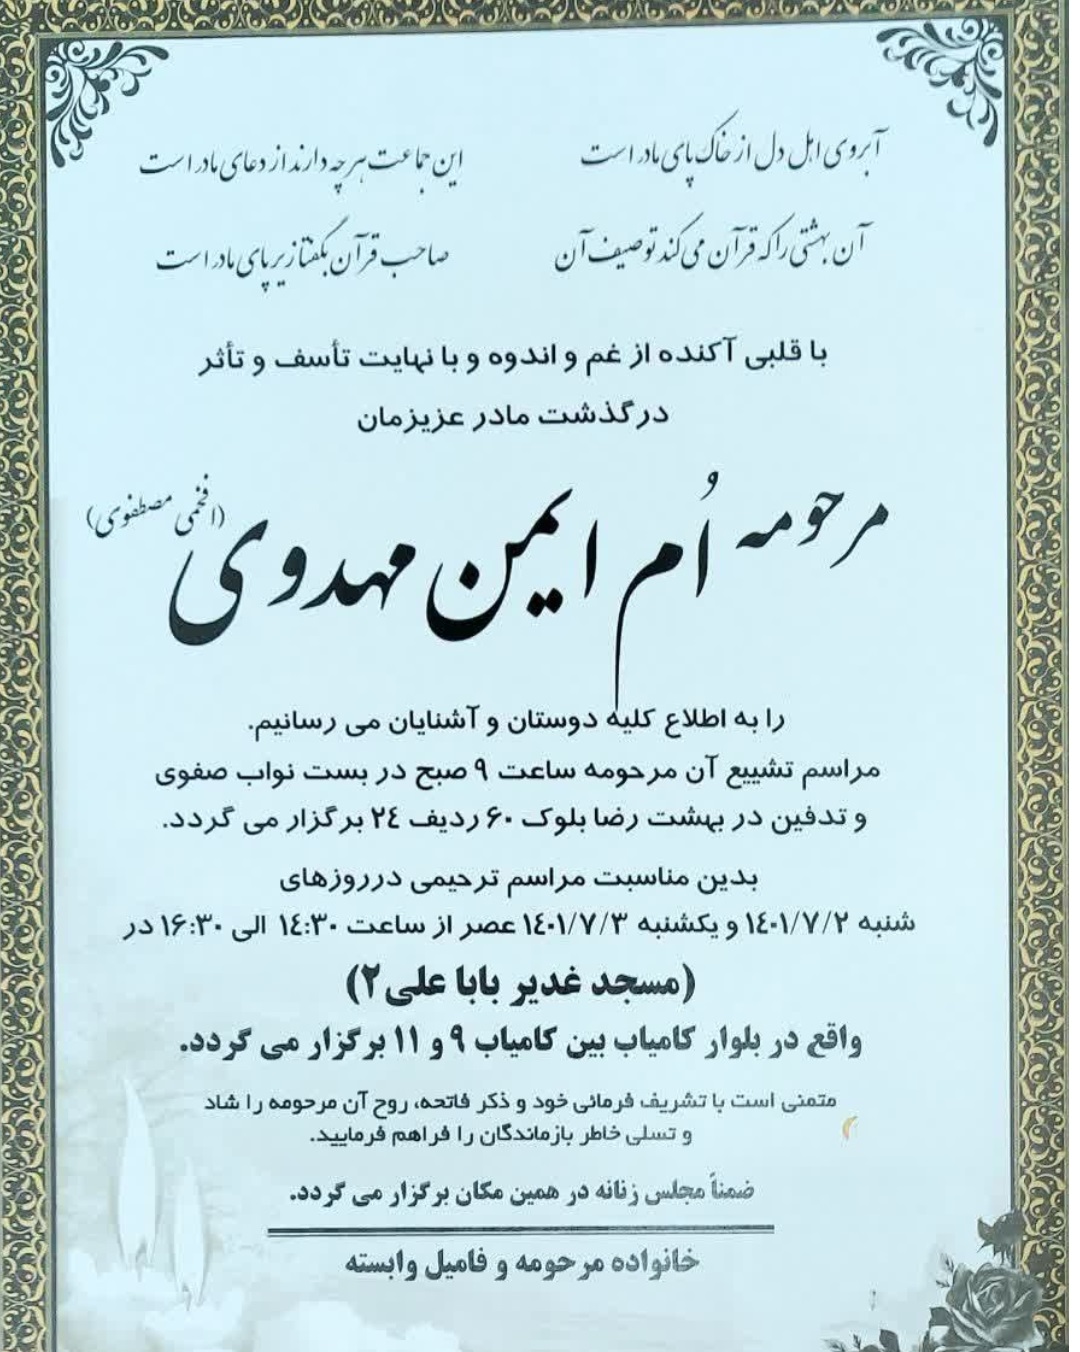 آبروی اهل دل از خاک پای مادر است
این جماعت هر چه دارند از دعای مادر است
آن بهشتی را که قرآن می کند توصیف آن
صاحب قرآن بگفتا زیر پای مادر است
با قلبی آکنده از غم و اندوه و با نهایت تأسف و تأثر
درگذشت مادر عزیزمان
مرحومه اُم ایمن مهدوی (افخمی مصطفوی)
را به اطلاع کلیه دوستان و آشنایان می رسانیم.
مراسم تشییع آن مرحومه ساعت ۹ صبح در بست نواب صفوی
و تدفین در بهشت رضا بلوک ۶۰ ردیف ٢٤ برگزار می گردد.
بدین مناسبت مراسم ترحیمی درروزهای
شنبه ١٤٠١/٧/٢ و یکشنبه ١٤٠١/٧/٣ عصر از ساعت ١٤:٣٠ الی ۱۶:۳۰ در
(مسجد غدیر بابا علی۲)
واقع در بلوار کامیاب بین کامیاب ۹ و ۱۱ برگزار می گردد.
متمنی است با تشریف فرمائی خود و ذکر فاتحه، روح آن مرحومه را شاد
و تسلی خاطر بازماندگان را فراهم فرمایید.
ضمناً مجلس زنانه در همین مکان برگزار می گردد.
خانواده مرحومه و فامیل وابسته